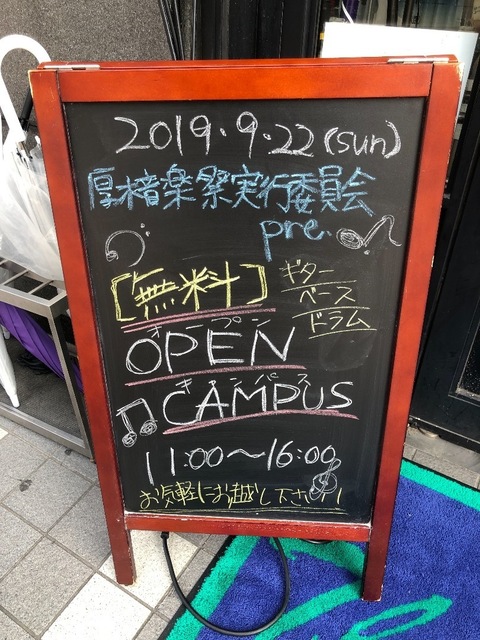 2019.9.22(sun)
厚木音楽祭実行委員会
pre.
[無料]
ギター
ベース
ドラム
オープン
OPEN
キャンパス
CAMPUS
11:00～16:00
お気軽にお越し下さい!